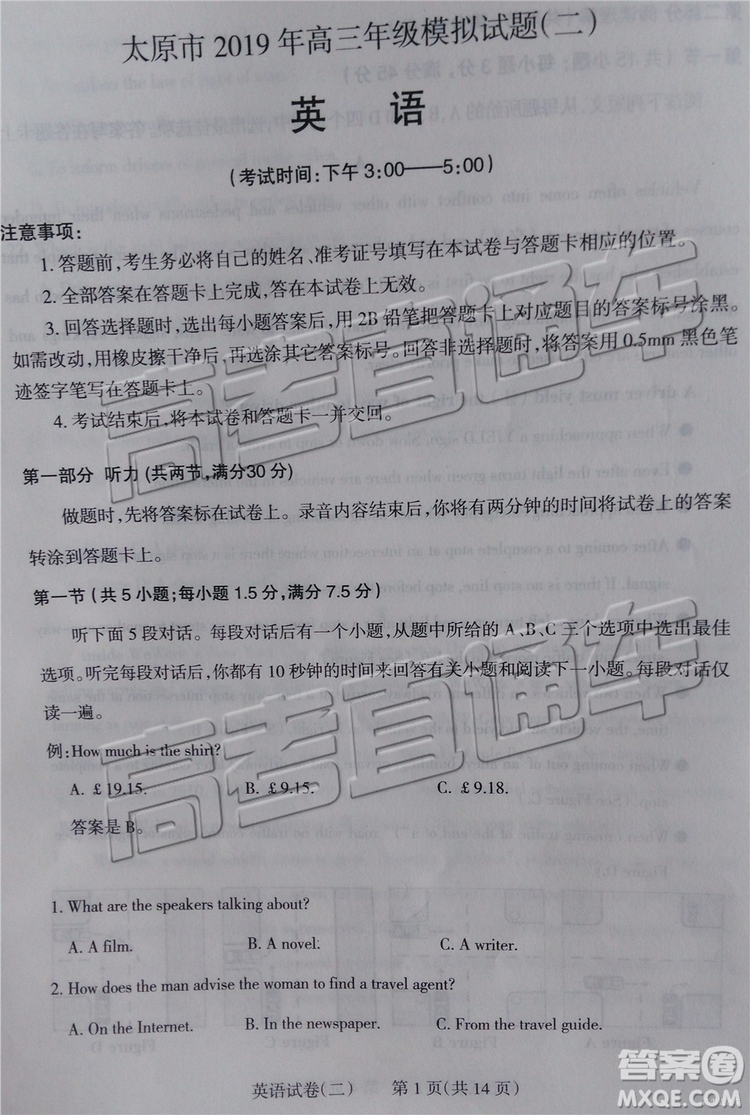 太原市2019年高三年级模拟试题(二)
英 语
(考试时间:下午3:00——5:00)
注意事项:
1.答题前,考生务必将自己的姓名、准考证号填写在本试卷与答题卡相应的位置。
2.全部答案在答题卡上完成,答在本试卷上无效。
3.回答选择题时,选出每小题答案后,用2B铅笔把答题卡上对应题目的答案标号涂黑。
如需改动,用橡皮擦干净后,再选涂其它答案标号。回答非选择题时,将答案用0.5mm黑色笔
迹签字笔写在答题卡上。
4.考试结束后,将本试卷和答题卡一并交回。
第一部分 听力(共两节,满分30分)
做题时,先将答案标在试卷上。录音内容结束后,你将有两分钟的时间将试卷上的答案
转涂到答题卡上。
第一节(共5小题;每小题1.5分,满分7.5分)
听下面5段对话。每段对话后有一个小题,从题中所给的A、B、C三个选项中选出最佳
选项。听完每段对话后,你都有10秒钟的时间来回答有关小题和阅读下一小题。每段对话仅
读一遍。
例:How much is the shirt?
A. £19.15. B. £9.15. C. £9.18.
答案是B。
1. What are the speakers talking about?
A. A film. B. A novel. C. A writer.
2. How does the man advise the woman to find a travel agent?
A. On the Internet. B. In the newspaper. C. From the travel guide.
英语试卷(二) 第1页(共14页)
高考直通车
高考直通车
答案圈
MXQE.COM